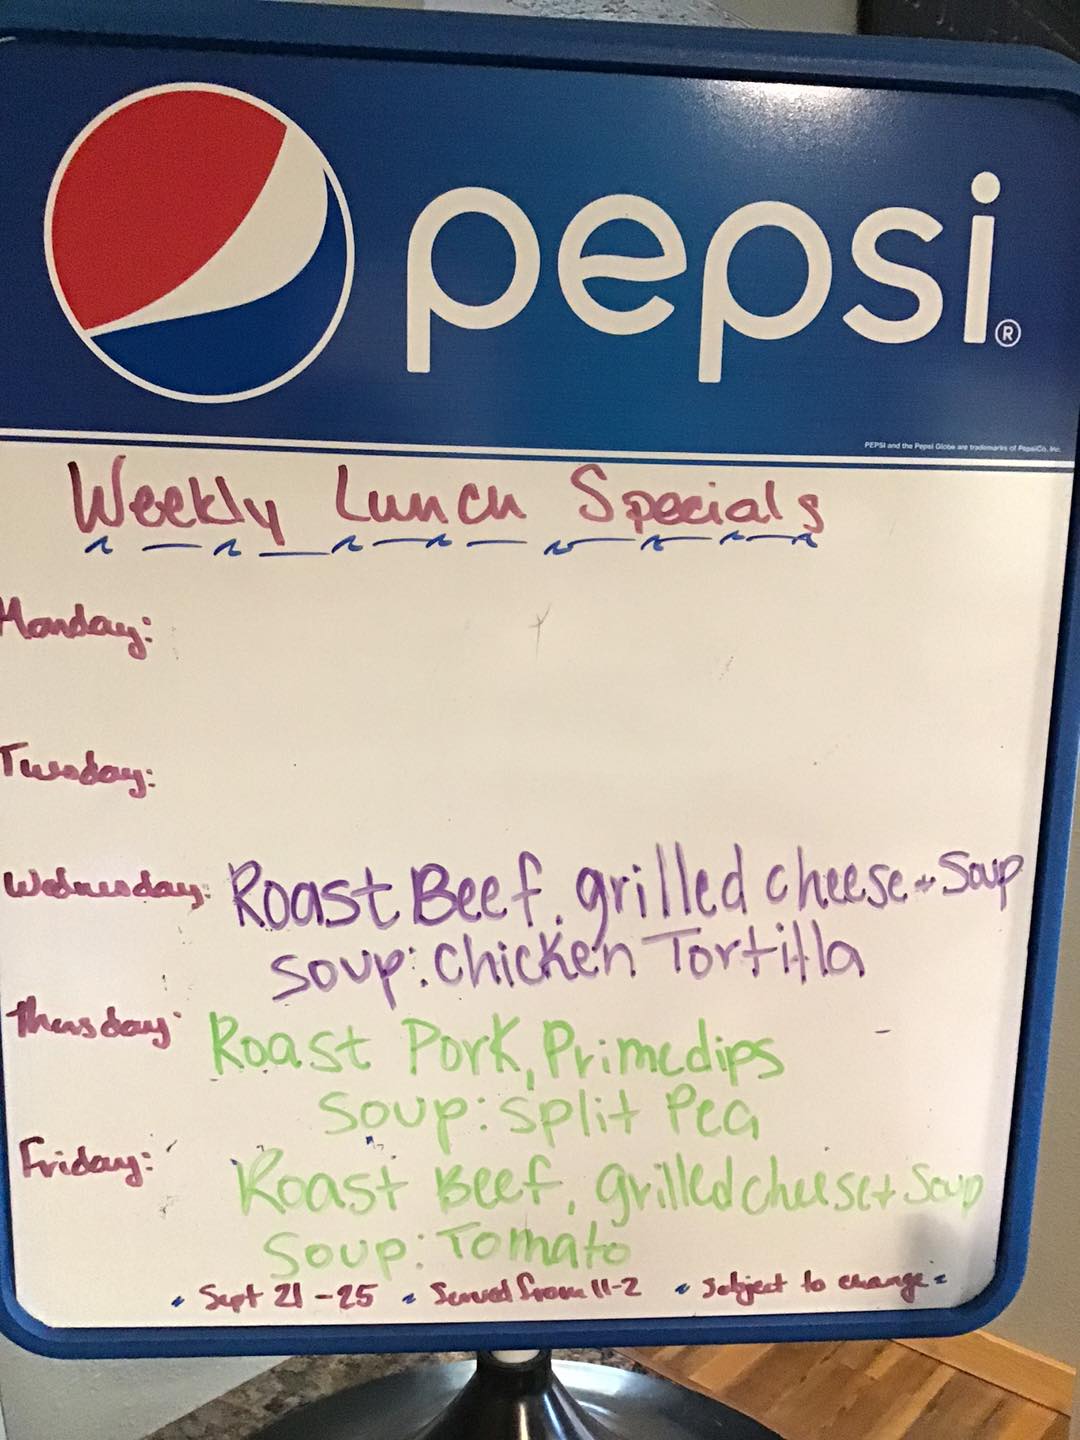 pepsi®
PEPSI and the Pepsi Globe are trademarks of PepsiCo, Inc.
Weekly Lunch Specials
Monday:
Tuesday:
Wednesday: Roast Beef, grilled cheese + Soup
Soup: Chicken Tortilla
Thursday: Roast Pork, Primedips
Soup: Split Pea
Friday: Roast Beef, grilled cheese + Soup
Soup: Tomato
Sept 21-25 Served from 11-2 Subject to change